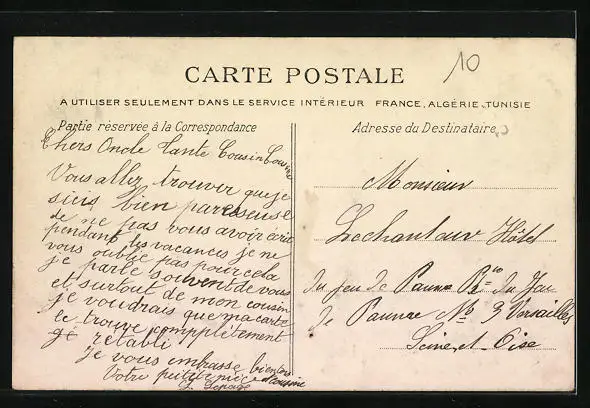 10
CARTE POSTALE
A UTILISER SEULEMENT DANS LE SERVICE INTÉRIEUR FRANCE, ALGÉRIE, TUNISIE
Partie réservée à la Correspondance
Chers Oncle Tante Cousin Cousine
Vous allez trouver que je
suis bien paresseuse
de ne pas vous avoir écrit
pendant les vacances je ne
vous oublie pas pour cela
je parle souvent de vous
et surtout de mon cousin
je voudrais que ma carte
le trouve complètement
rétabli
je vous embrasse bien
Votre petite nièce et cousine
Lepage
Adresse du Destinataire
Monsieur
Lechantaur Hôtel
du jeu de Paume du Jeu
de Paume No 3 Versailles
Seine et Oise